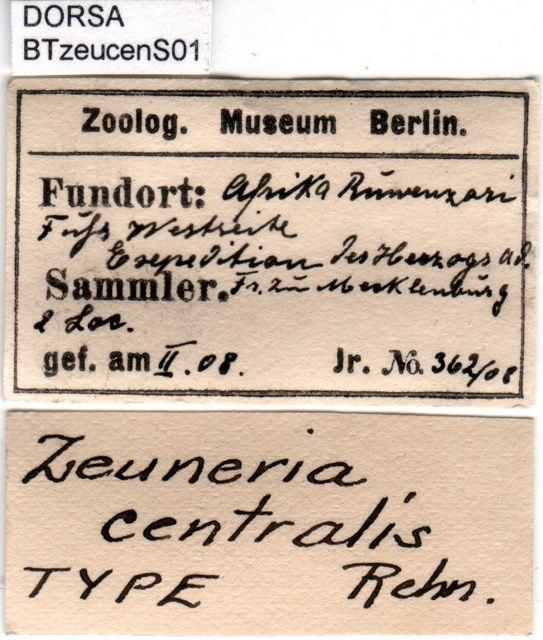 DORSA
BTzeucenS01
Zoolog. Museum Berlin.
Fundort: Afrika Ruwenzori
Fuß Westseite
Exepedition des Herzogs Ad.
Sammler. Fr. zu Mecklenburg
gef. am II. 08. Jr. No. 362/08
Zeuneria
centralis
TYPE Rehn.